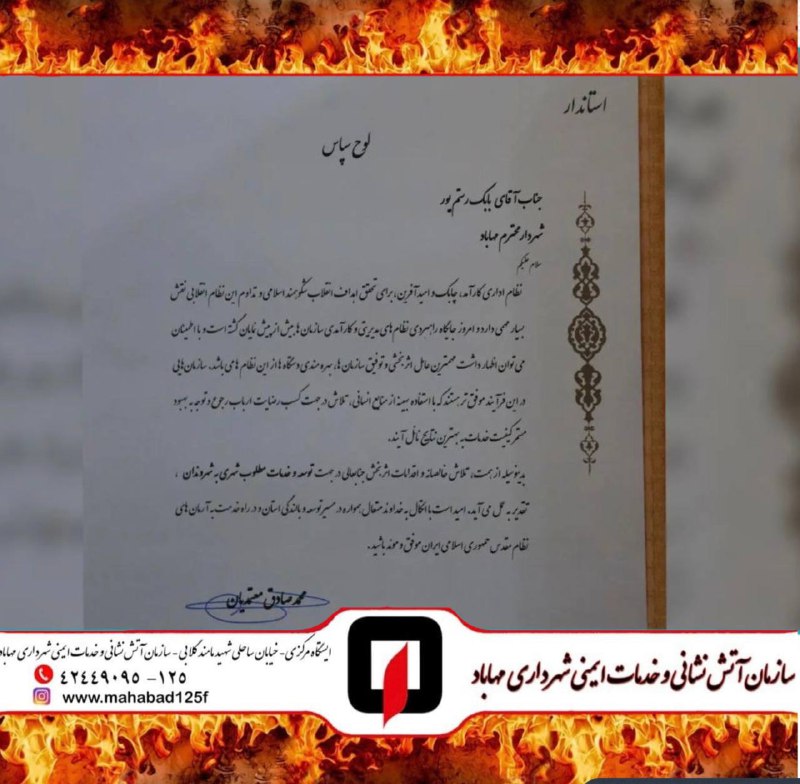 استاندار
لوح سپاس
جناب آقای بابک رستم پور
شهردار محترم مهاباد
سلام علیکم
نظام اداری کارآمد، چابک و امیدآفرین، برای تحقق اهداف انقلاب شکوهمند اسلامی و تداوم این نظام انقلابی نقش
بسیار مهمی دارد و امروز جایگاه راهبردی نظام های مدیریتی و کارآمدی سازمان ها بیش از پیش نمایان گشته است و با اطمینان
می توان اظهار داشت مهمترین عامل اثربخشی و توفیق سازمان ها، بهره مندی دستگاه ها از این نظام ها می باشد. سازمان هایی
در این فرآیند موفق تر هستند که با استفاده بهینه از منابع انسانی، تلاش در جهت کسب رضایت ارباب رجوع و توجه به بهبود
مستمر کیفیت خدمات به بهترین نتایج نائل آیند.
بدینوسیله از همت، تلاش خالصانه و اقدامات اثربخش جنابعالی در جهت توسعه و خدمات مطلوب شهری به شهروندان ،
تقدیر به عمل می آید. امید است با اتکال به خداوند متعال همواره در مسیر توسعه و بالندگی استان و در راه خدمت به آرمان های
نظام مقدس جمهوری اسلامی ایران موفق و موید باشید.
محمد صادق معتمدیان
سازمان آتش نشانی و خدمات ایمنی شهرداری مهاباد
ایستگاه مرکزی- خیابان ساحلی شهید مامند کلابی - سازمان آتش نشانی و خدمات ایمنی شهرداری مهاباد
۴۲۴۴۹۰۹۵ -۱۲۵
www.mahabad125f